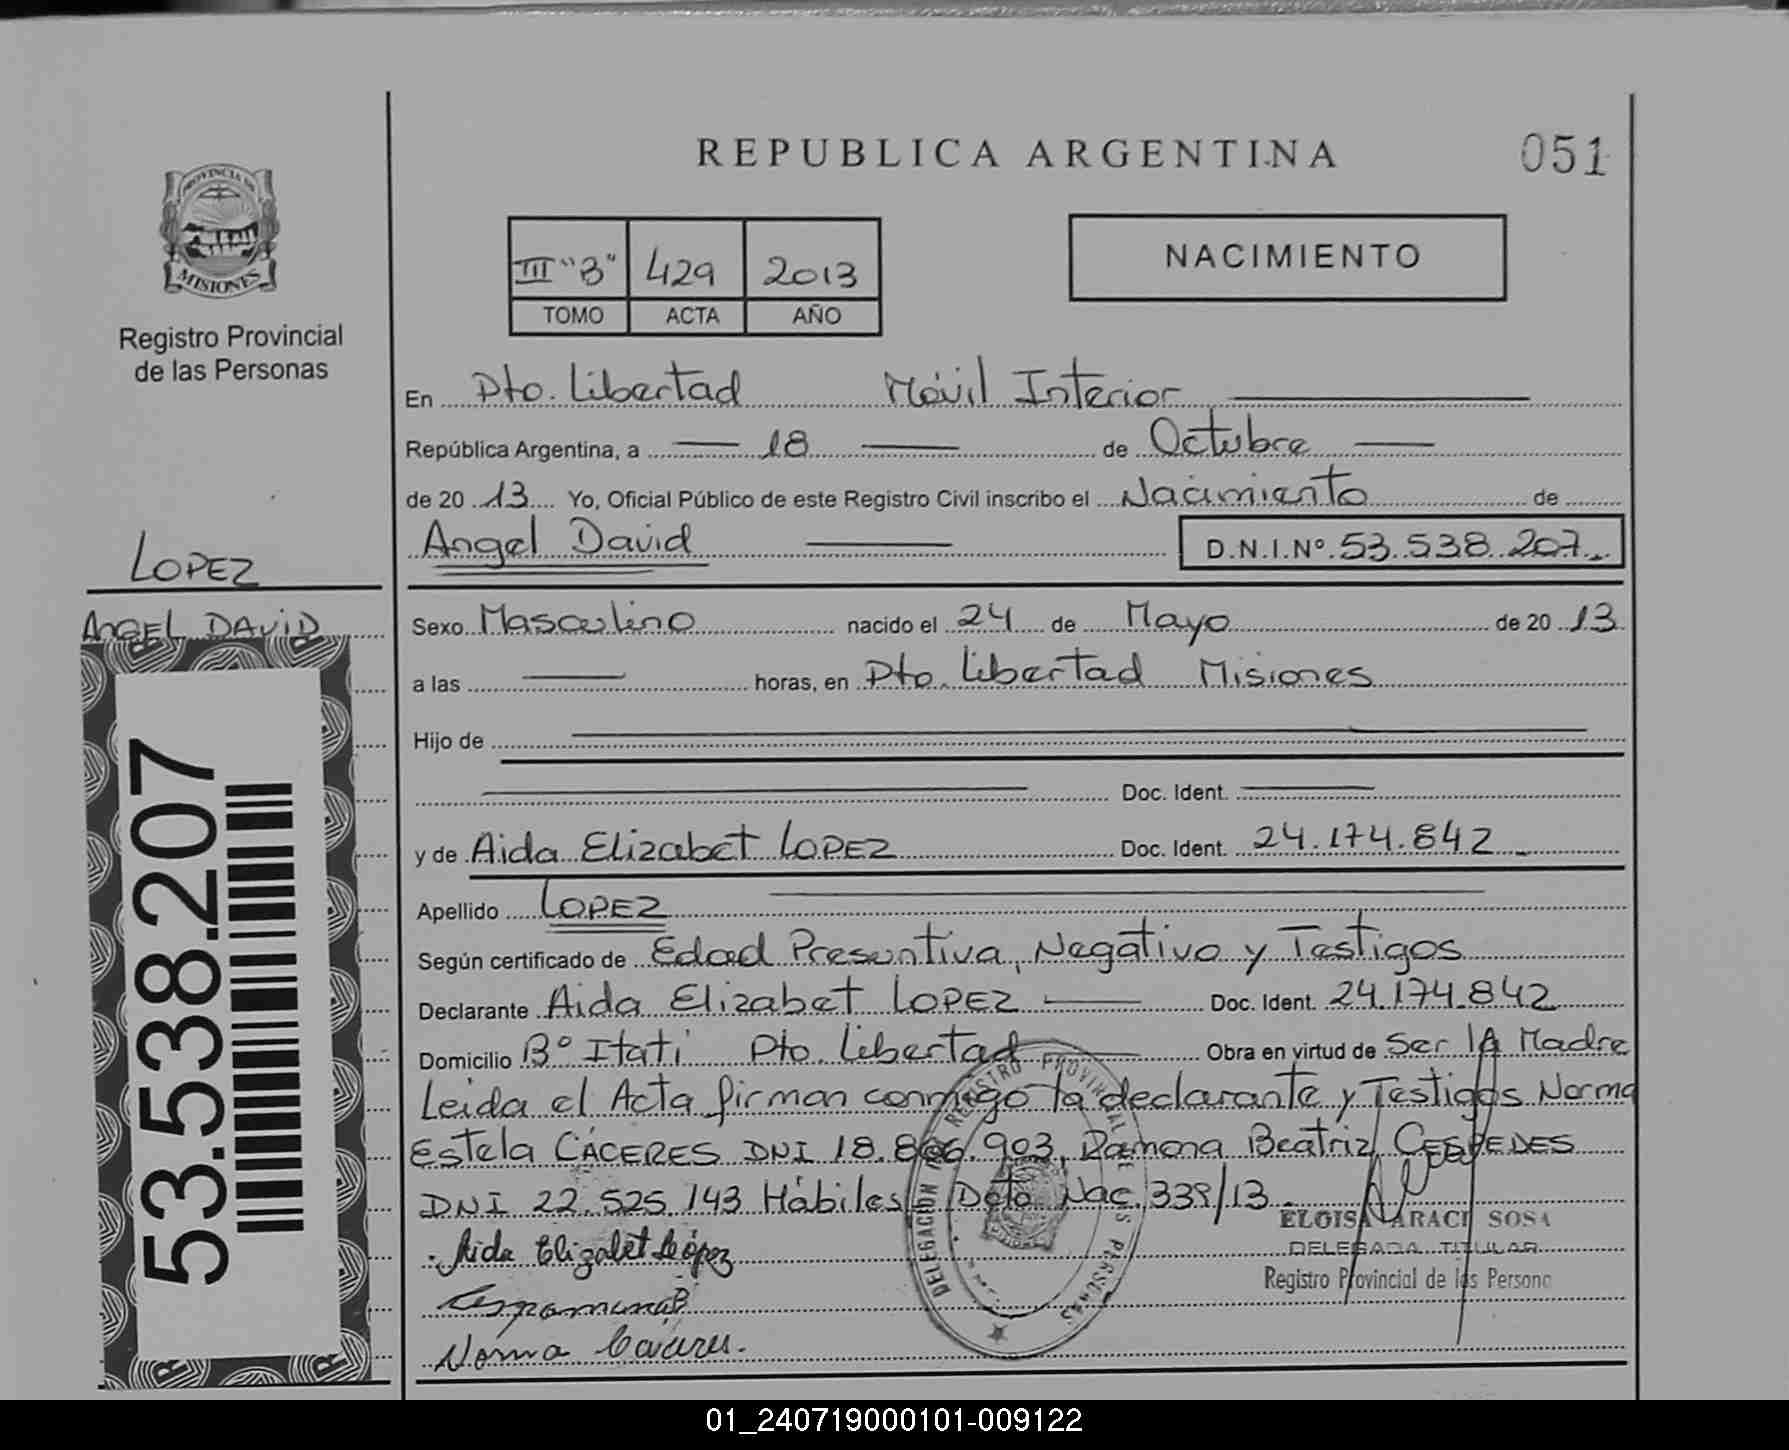 REPUBLICA ARGENTINA
051
PROVINCIA DE
MISIONES
Registro Provincial
de las Personas
III "B" 429 2013
TOMO ACTA AÑO
NACIMIENTO
En Pto. Libertad Móvil Interior
República Argentina, a 18 de Octubre
de 20 13 Yo, Oficial Público de este Registro Civil inscribo el Nacimiento de
Angel David D.N.I.Nº 53.538.207
LOPEZ
ANGEL DAVID
Sexo Masculino nacido el 24 de Mayo de 20 13
a las horas, en Pto. Libertad Misiones
Hijo de
Doc. Ident.
y de Aida Elizabet LOPEZ Doc. Ident. 24.174.842
Apellido LOPEZ
Según certificado de Edad Presuntiva, Negativo y Testigos
Declarante Aida Elizabet LOPEZ Doc. Ident. 24.174.842
Domicilio Bº Itati Pto. Libertad Obra en virtud de Ser la Madre
Leida el Acta firman conmigo la declarante y Testigos Norma
Estela CÁCERES DNI 18.866.903, Ramona Beatriz CESPEDES
DNI 22.525.143 Hábiles Dcto Nac. 339/13.
Aida Elizabet López
Norma Caceres.
53.538.207
DELEGACIÓN REGISTRO PROVINCIAL DE LAS PERSONAS
ELOISA ARACI SOSA
DELEGADA TITULAR
Registro Provincial de las Persona
01_240719000101-009122